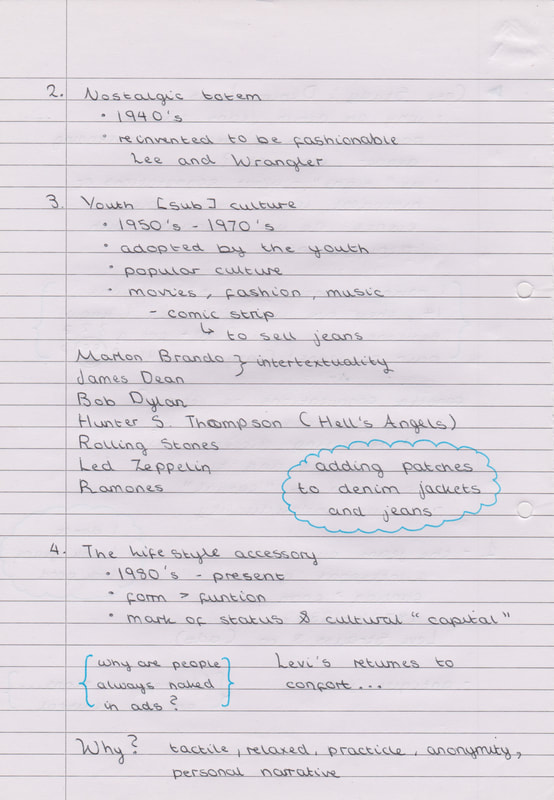 2. Nostalgic totem
• 1940's
• reinvented to be fashionable
Lee and Wrangler
3. Youth [sub] culture
• 1950's - 1970's
• adopted by the youth
• popular culture
• movies, fashion, music
- comic strip
↳ to sell jeans
Marlon Brando } intertextuality
James Dean
Bob Dylan
Hunter S. Thompson (Hell's Angels)
Rolling Stones
Led Zeppelin
Ramones
adding patches
to denim jackets
and jeans
4. The lifestyle accessory
• 1980's - present
• form > funtion
• mark of status & cultural "capital"
{ why are people }
always naked
in ads?
Levi's returnes to
confort...
Why? tactile, relaxed, practicle, anonymity,
personal narrative